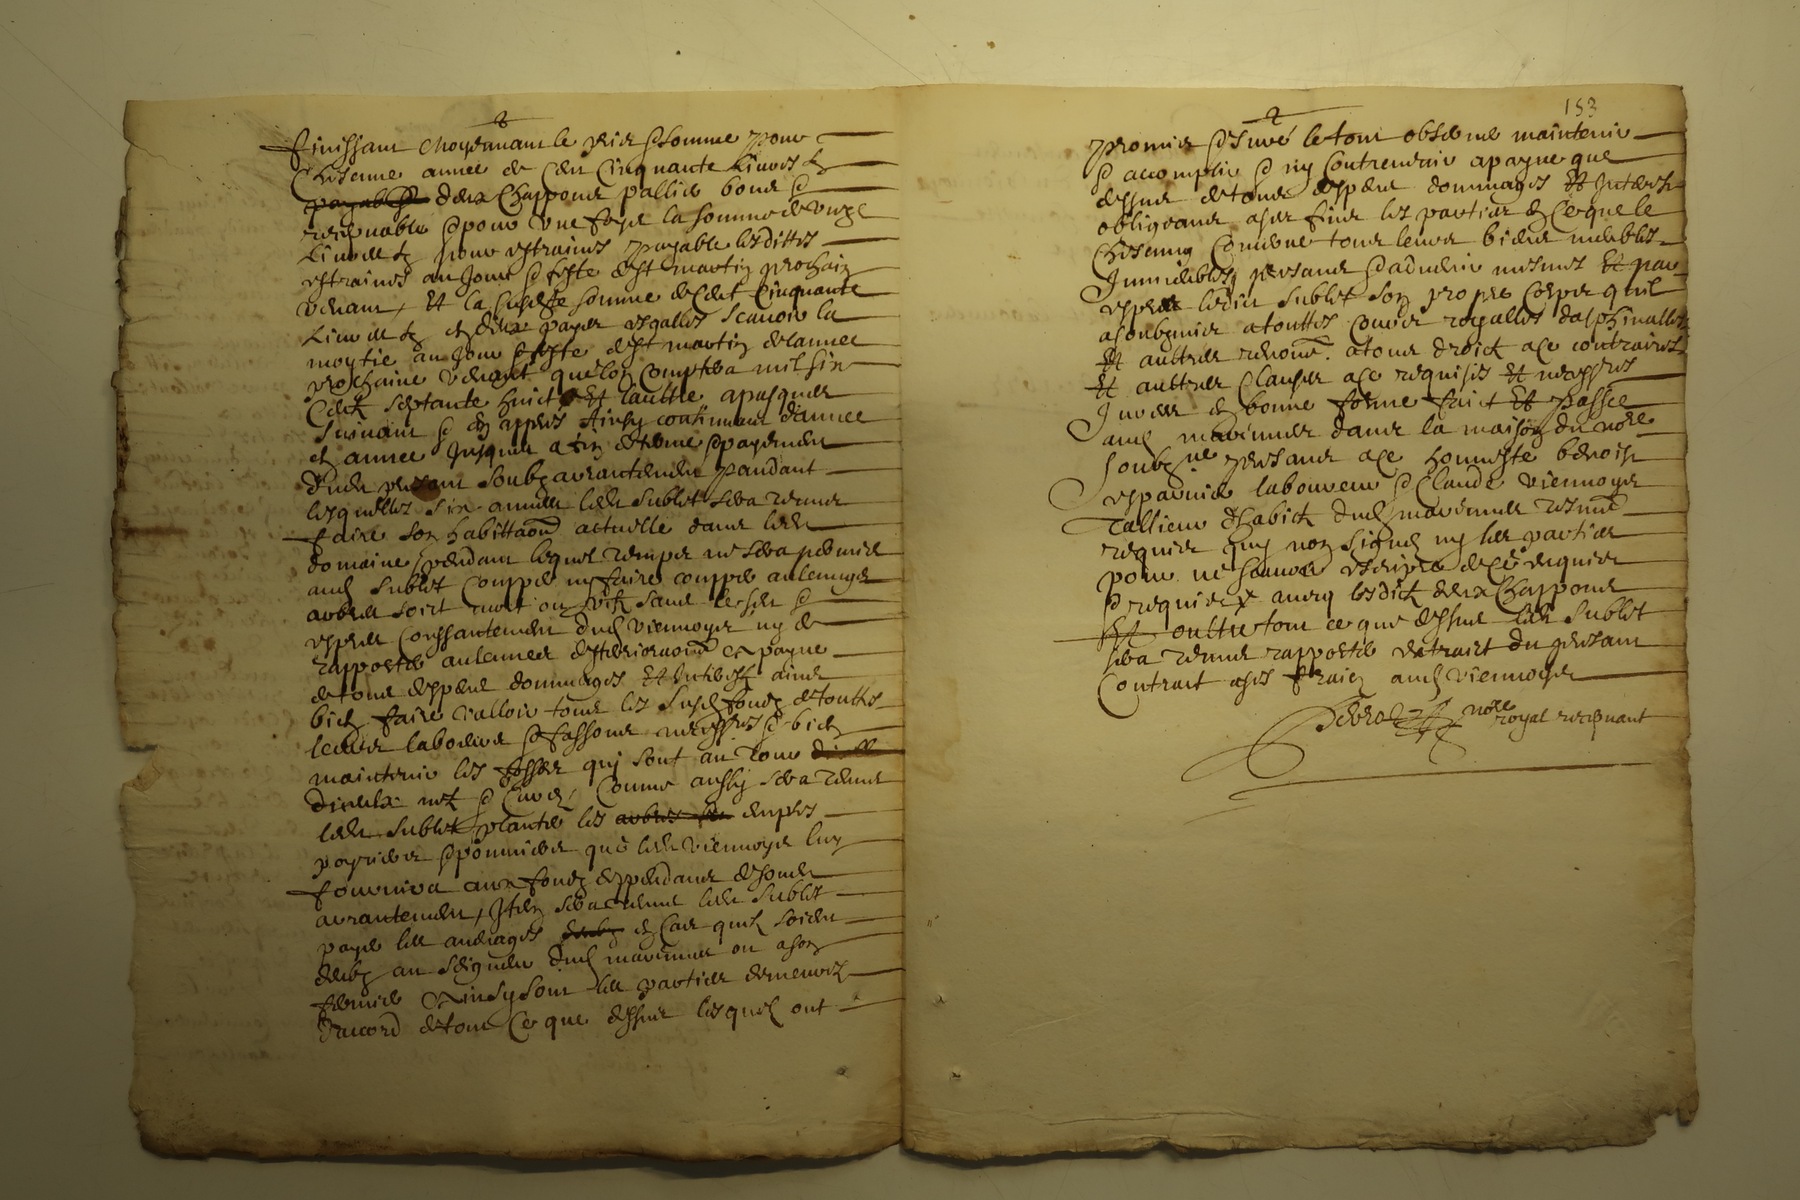 finissant Moyennant le prix et somme pour
Chescune annee de Cent Cinquante Livres tz
payables deux Chappons pallier bons et
recepvable et pour une foys la somme de unze
Livres tz pour estraines payable lesdittes
estraines au Jour et feste de St martin prochain
venant, Et la susditte somme de Cent Cinquante
Livres tz en deux payes esgalles scavoir la
moytie au Jour et feste de St martin de lannee
prochaine venant que lon comptera mil six
Cent septante huict Et lauttre a pasques
suivant et en appres Ainsy continuant dannee
en annee Jusques a fin de terme et payement
dud. present soubz arrantement pandant
lesquelles six annees led. sublet sera tenu
faire son habittaon actuelle dans led.
domaine, pendant lequel temps ne sera permis
aud. sublet coupper ny faire coupper aulcungs
arbres soict mort ou vifz sans le sceu et
expres conssantement dud. viennoys ny de
rapporter aulcunes desterioraon a payne
de tous despens dommages Et Interestz ains
bien faire valloir tous les susd. fondz de touttes
leurs labories et fassons necessres et bien
maintenir les fosses quy sont au tour
diceulx netz et curez, Comme aussy sera tenu
led. sublet planter les arbres entes
poyriers et pommiers que led. viennoys luy
fournira aux fondz deppendans de soud.
arrantement, Item sera tenu led. sublet
payer les aneiages en cas quilz soient
deubz au seigneur dud. marennes ou a son
fermier Ainsy sont les parties demeurez
daccord de tout Ce que dessus lesquelz ont
153
promis et Jure le tout observer maintenir
et accomplir et ny contrevenir a payne que
dessus de tous despens dommages Et Interestz
obligeans a ces fins les parties en Ce que le
Chescung concerne tous leurs biens meubles
Immeubles presans et advenir mesmes Et par
expres ledict sublet son propre Corps quil
a soubzmis a touttes cours royalles dalphinalles
Et auttres renonce. a tous droict a ce contraires
Et auttres Clauses a ce requises Et necessres
Jures en bonne forme faict Et Passe
aud. marennes dans la maison du nore
soubzne presans a ce honneste benoist
esparvier laboureur et Claude viennoys
Tallieur dhabitz dud. marennes tesmn
requis quy non signez ny les parties
pour ne scavoir escripre de ce enquis
et requis avecq lesdictz deux Chappons
Et oultre tout ce que dessus led. sublet
sera tenu rapporter extraict du present
Contract a ses fraiz aud. viennoys
nore royal recepvant